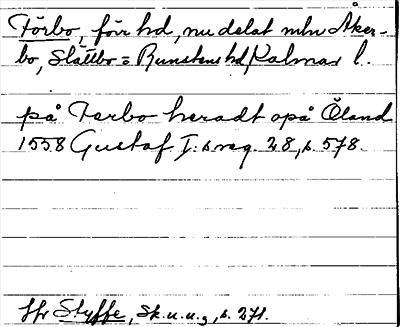 Förbo, förr hd, nu delat mln Åker-
bo, Slättbo = Runstens hd, Kalmar l.
på Farbo heradt opå Öland
1558 Gustaf I:s reg. 28, s 578.
Jfr Styffe, Sk.u.u.3, s. 271.